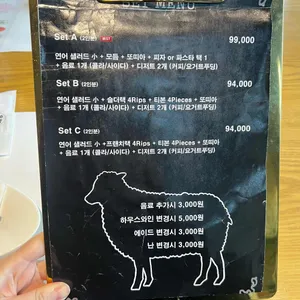 SET MENU
Set A (2인분) HOT 99,000
연어 샐러드 小 + 모듬 + 또띠아 + 피자 or 파스타 택 1
+ 음료 1개 (콜라/사이다) + 디저트 2개 (커피/요거트푸딩)
Set B (2인분) 94,000
연어 샐러드 小 + 숄더랙 4Ribs + 티본 4Pieces + 또띠아
+ 음료 1개 (콜라/사이다) + 디저트 2개 (커피/요거트푸딩)
Set C (2인분) 94,000
연어 샐러드 小 + 프렌치랙 4Ribs + 티본 4Pieces + 또띠아
+ 음료 1개 (콜라/사이다) + 디저트 2개 (커피/요거트푸딩)
음료 추가시 3,000원
하우스와인 변경시 5,000원
에이드 변경시 3,000원
난 변경시 3,000원